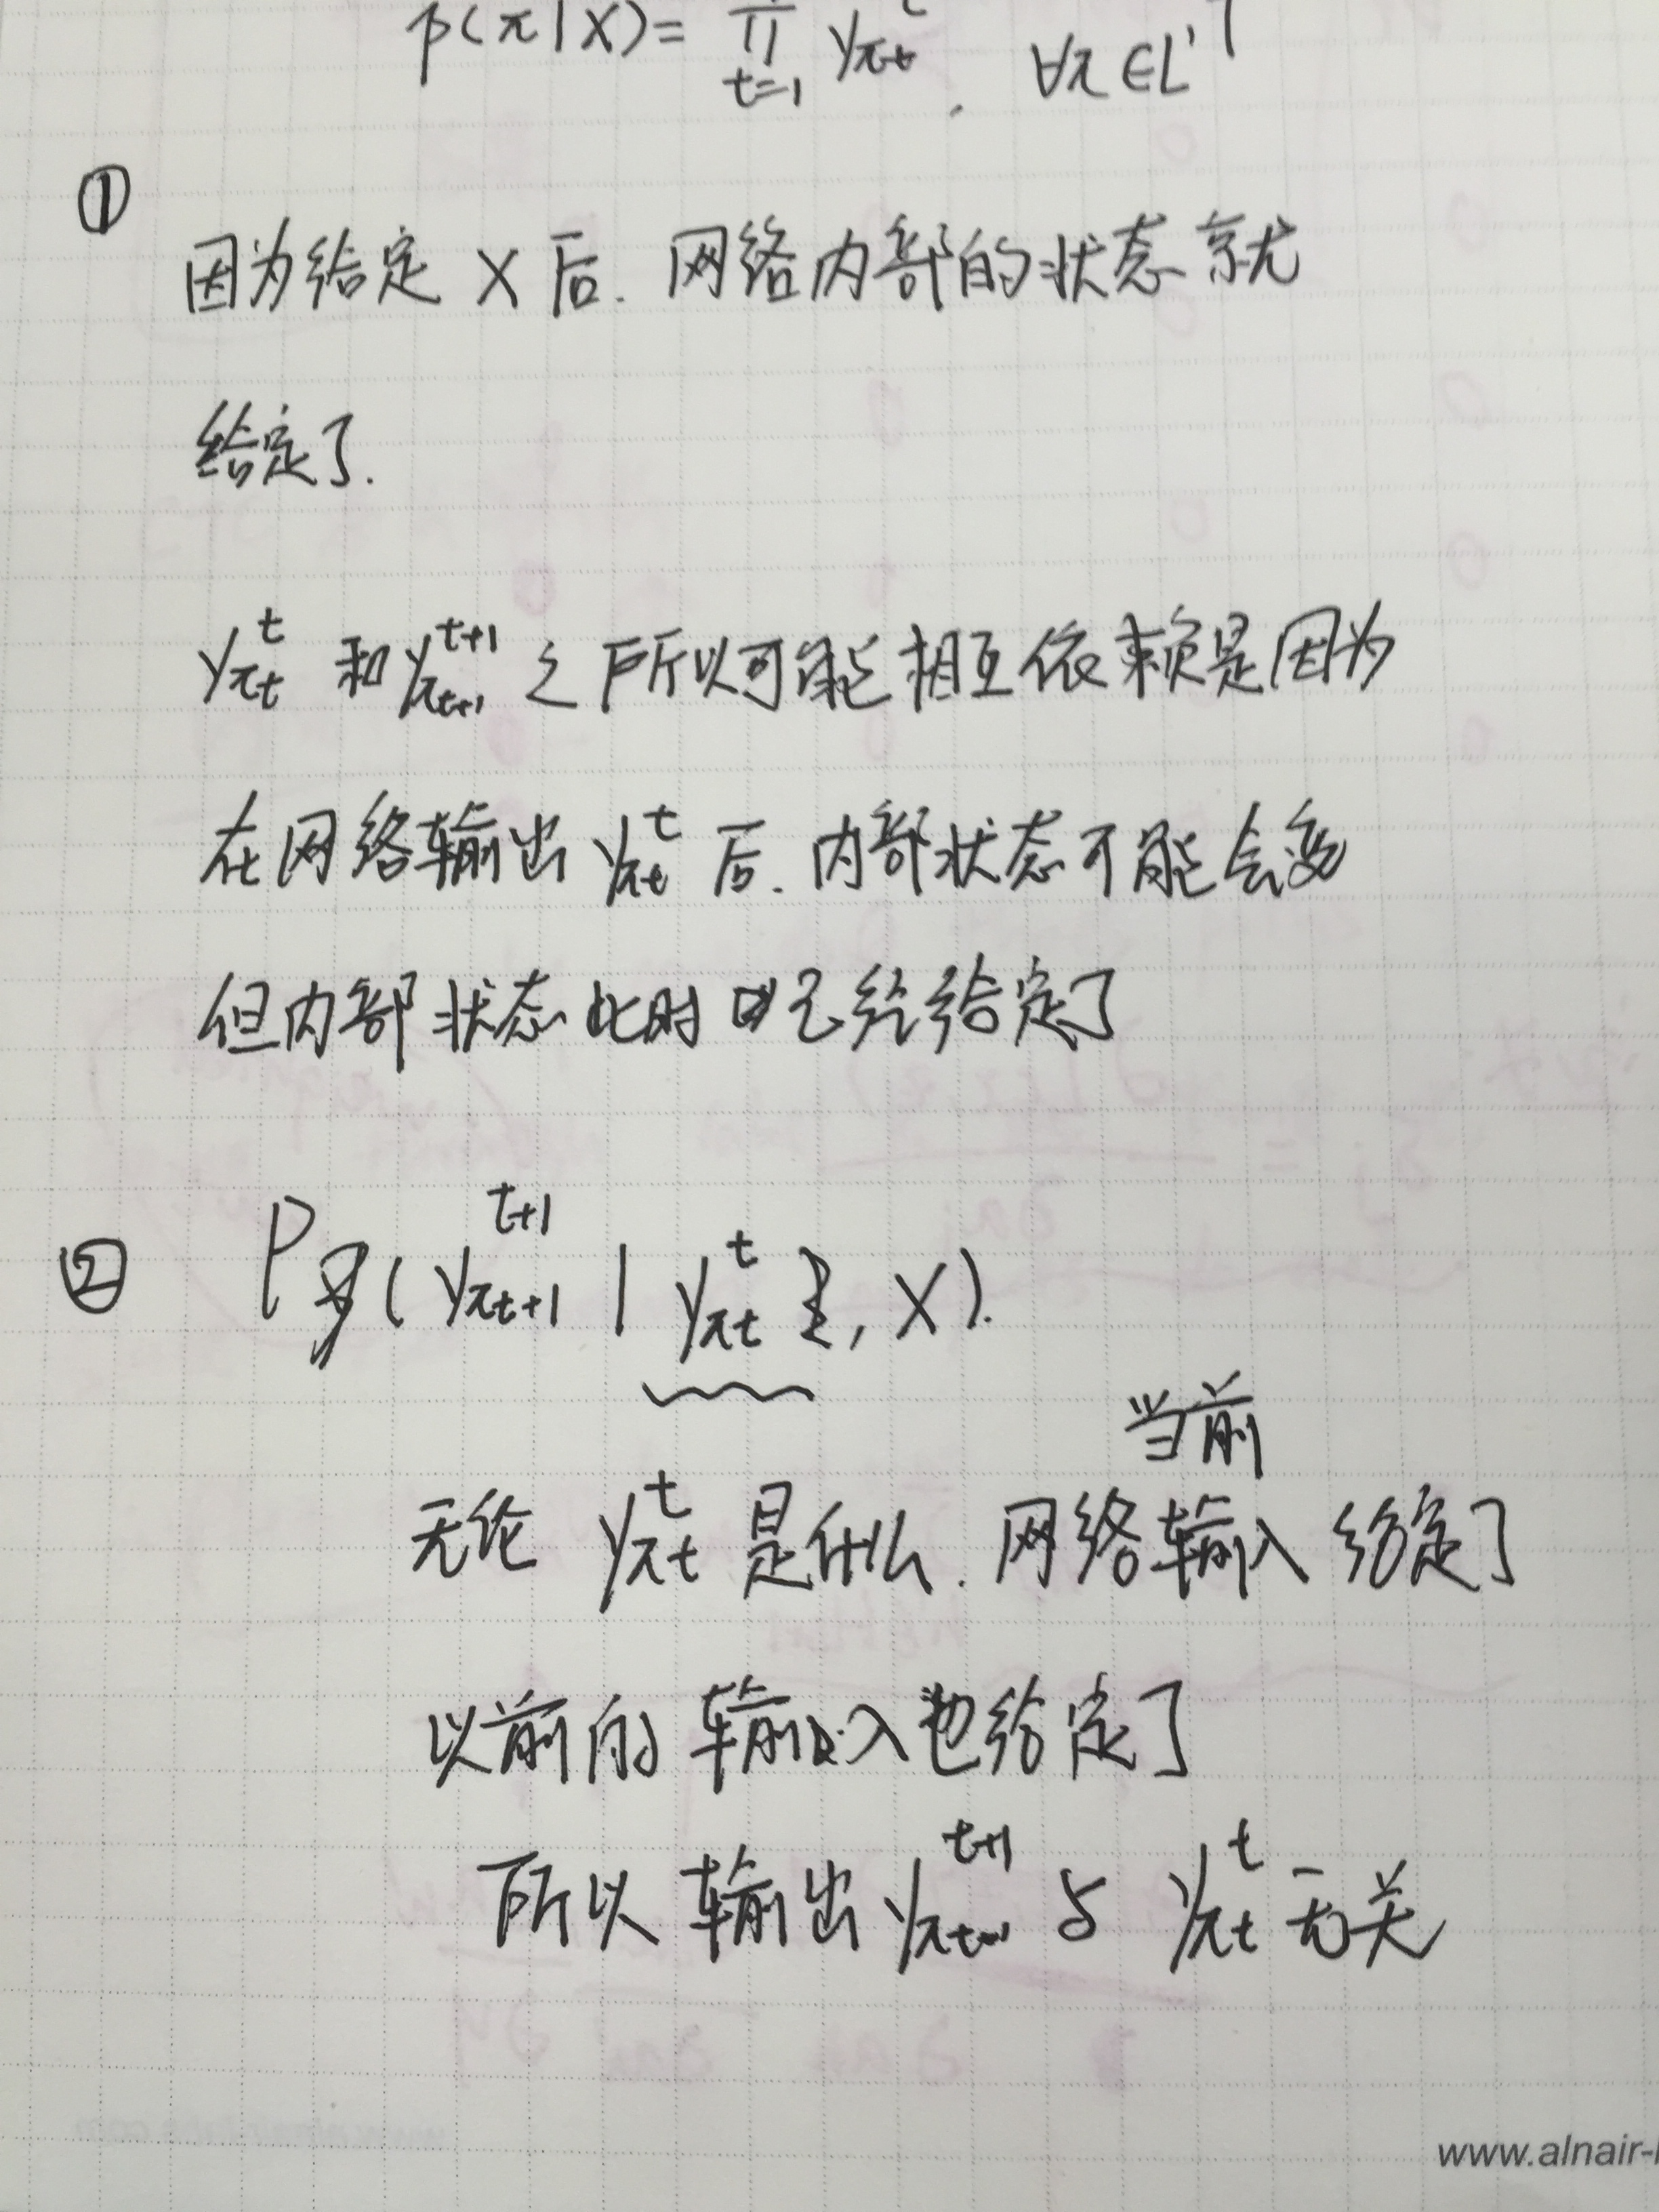 p(π|X)= ∏_{t=1} y_{πt}^t, ∀π∈L'^T
①
因为给定 X 后. 网络内部的状态就
给定了.
y_{πt}^t 和 y_{πt+1}^{t+1} 之所以可能相互依赖是因为
在网络输出 y_{πt}^t 后. 内部状态可能会变
但内部状态此时已经给定了
② P(y_{πt+1}^{t+1} | y_{πt}^t, X).
当前
无论 y_{πt}^t 是什么. 网络输入给定了
以前的输入也给定了
所以输出 y_{πt+1}^{t+1} 与 y_{πt}^t 无关
www.alnair-